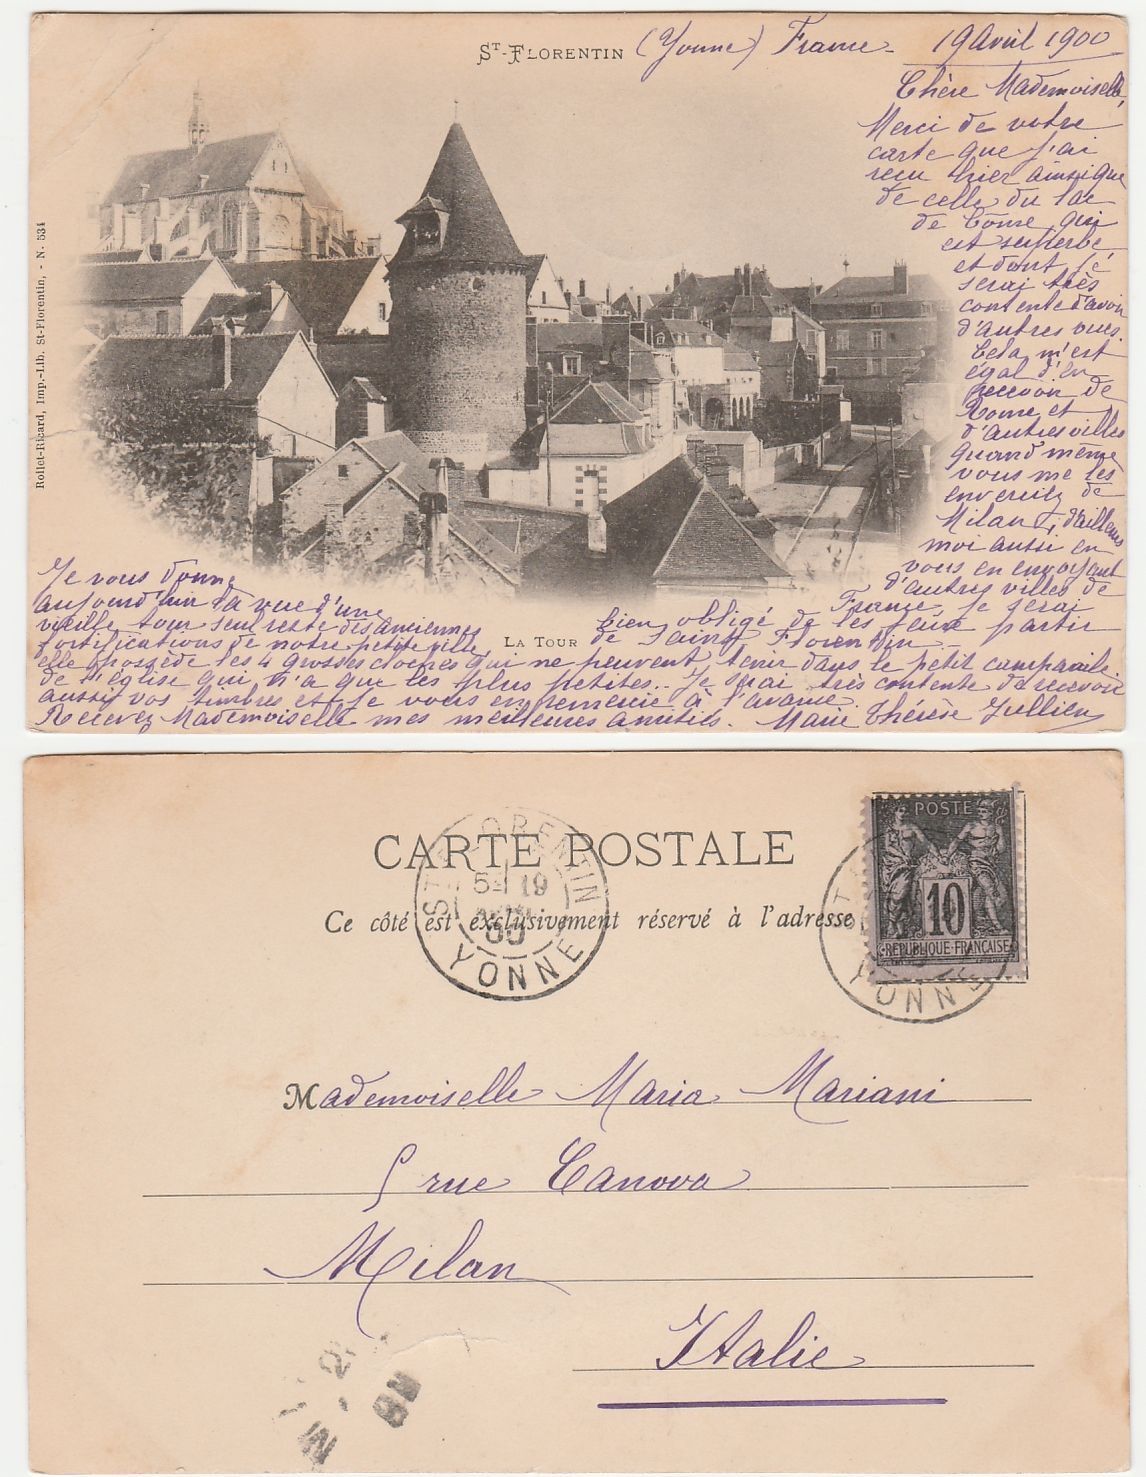 ST-FLORENTIN (Yonne) France - 19 Avril 1900
Chère Mademoiselle,
Merci de votre
carte que j'ai
reçu hier ainsi que
de celle du lac
de Côme, qui
est superbe
et dont je
serai très
contente d'avoir
d'autres vues.
Cela m'est
égal d'en
recevoir de
Rome et
d'autres villes
quand même
vous me les
enverriez de
Milan, d'ailleurs
moi aussi en
vous en envoyant
d'autres villes de
France, je serai
bien obligé de les faire partir
de Saint Florentin.
Je vous donne
aujourd'hui la vue d'une
vieille tour seul reste des anciennes
fortifications de notre petite ville,
elle possède les 4 grosses cloches qui ne peuvent tenir dans le petit campanile
de l'église qui n'a que les plus petites.. Je serai très contente de recevoir
aussi vos timbres et je vous en remercie à l'avance.
Recevez Mademoiselle mes meilleures amitiés. Marie Thérèse Jullien
LA TOUR
Rollet-Ricard, Imp.-Lib. St-Florentin, - N. 534
CARTE POSTALE
Ce côté est exclusivement réservé à l'adresse
ST FLORENTIN
5E 19
00
YONNE
POSTE
10
REPUBLIQUE FRANÇAISE
YONNE
Mademoiselle Maria Mariani
5 rue Canova
Milan
Italie